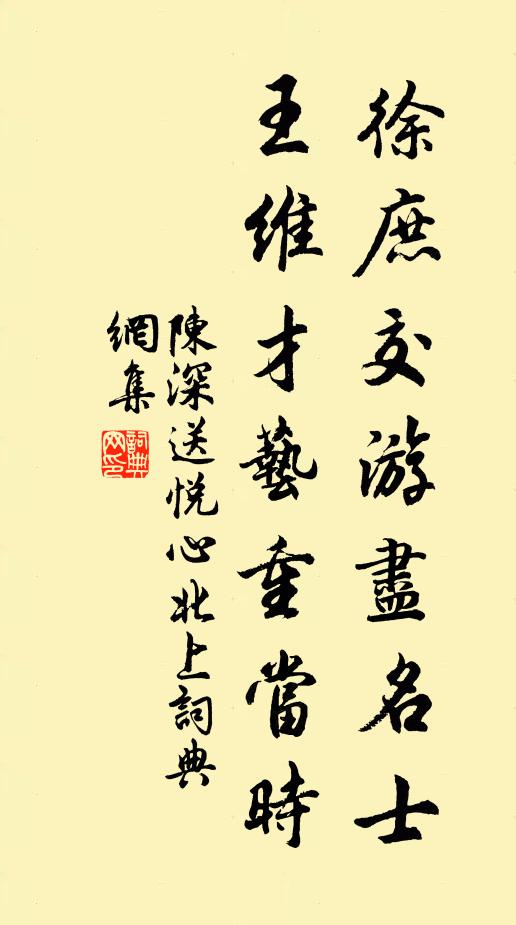 徐庶交游盡名士
王維才藝重當時
陳深送悦心北上詞典
網集
詞典
网印